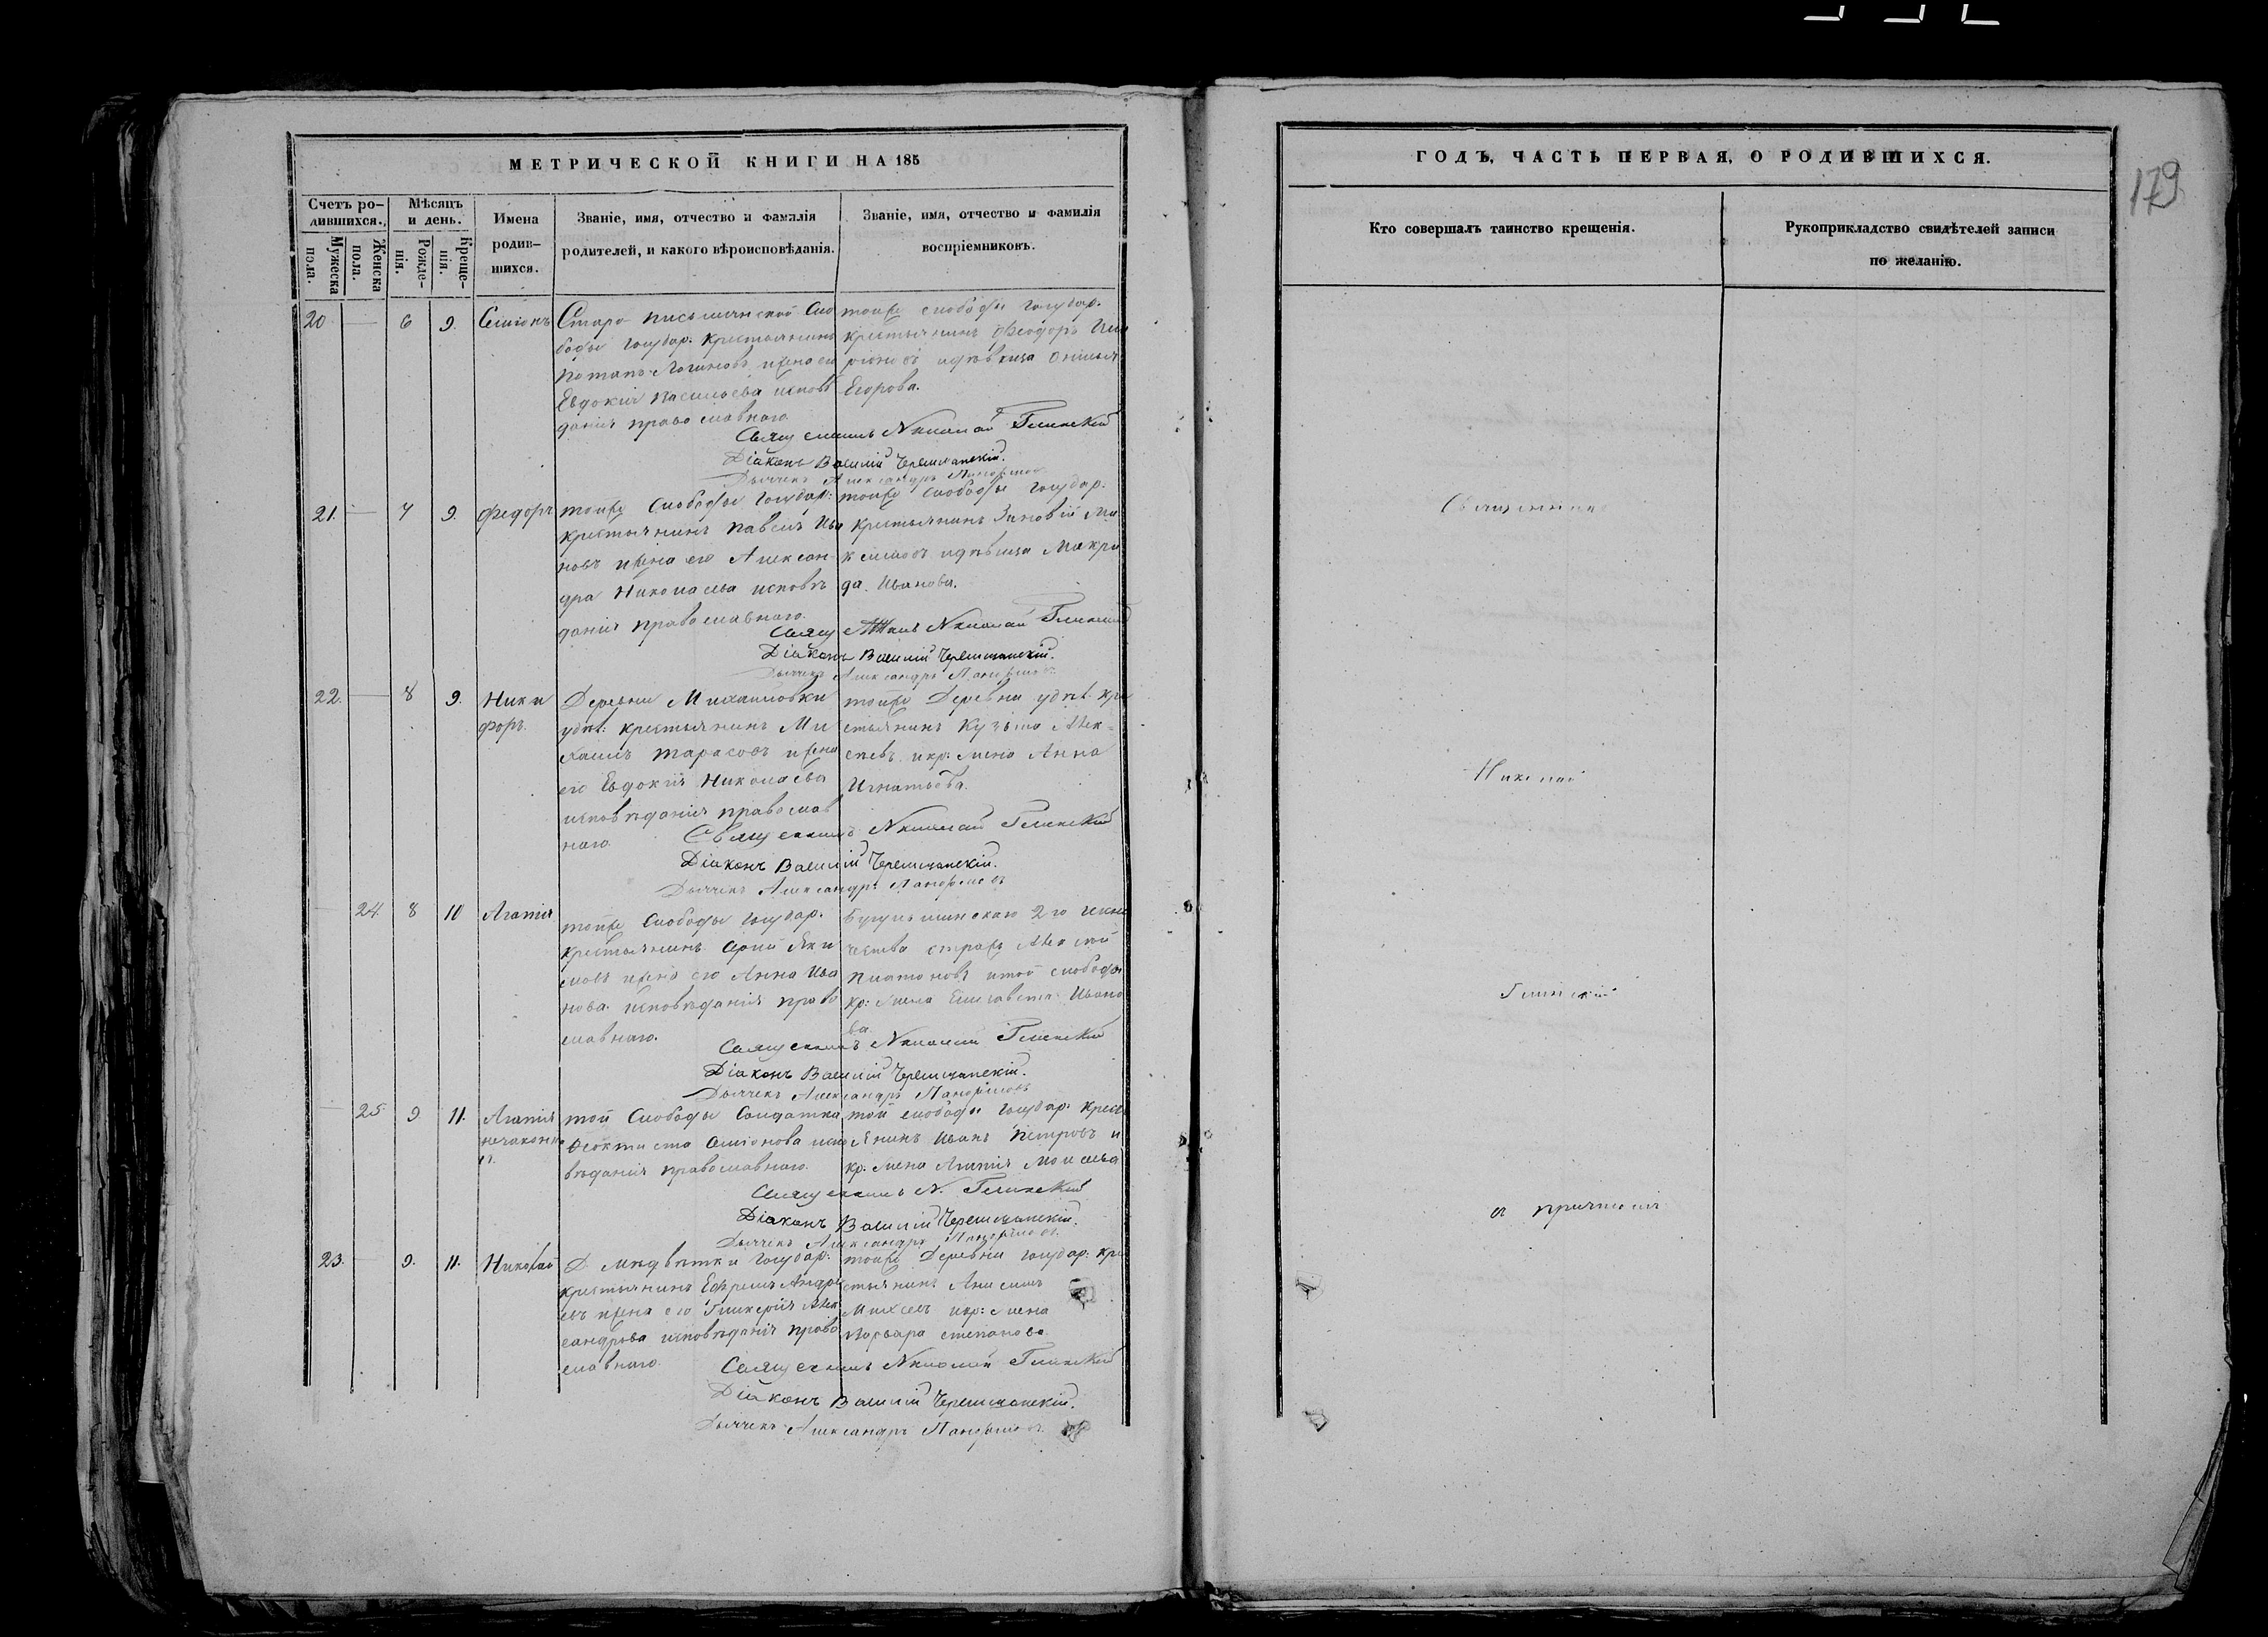 МЕТРИЧЕСКОЙ КНИГИ НА 185
Счетъ родившихся.
Мѣсяцъ и день.
Имена родившихся.
Званіе, имя, отчество и фамилія родителей, и какого вѣроисповѣданія.
Званіе, имя, отчество и фамилія воспріемниковъ.
Мужеска пола.
Женска пола.
Рожденія.
Крещенія.
20 — 6 9. Семіонъ
Старо письмянской Сло
боды государ: крестьянинъ
Потапъ Логиновъ и жена его
Евдокия Васильева исповѣ
данія православнаго.
тойже слободы государ.
крестьянинъ Феодоръ
и дѣвица
Егорова.
Священникъ Николай Глинскій
Діаконъ Василій Черемшанскій.
Дьячекъ Александръ
21. — 7 9. Федоръ
тойже Слободы государ:
крестьянинъ Павелъ Ива
новъ и жена его Алексан-
дра Николаева исповѣ
данія православнаго.
тойже слободы государ.
крестьянинъ Зиновій Ма
ксимовъ и дѣвица Макри
да Иванова.
Священникъ Николай Глинскій
Діаконъ Василій Черемшанскій.
Дьячекъ Александръ
22. — 8 9. Ники
форъ.
Деревни Михаиловки
удѣл: крестьянинъ Ми
хаилъ Тарасовъ и жена
его Евдокія Николаева
исповѣданія православ
наго
тойже Деревни удѣл. кре
стьянинъ Кузьма Алек=
сѣевъ и кр: жена Анна
Игнатьева.
Священникъ Николай Глинскій
Діаконъ Василій Черемшанскій.
Дьячекъ Александръ
— 24. 8 10 Агапія
тойже Слободы государ.
крестьянинъ Яки
мовъ и жена его Анна Ива
нова исповѣданія право
славнаго.
Бугульминскаго 2го
Платоновъ и той слободы
кр: жена Елисавета Ивано
ва
Священникъ Николай Глинскій
Діаконъ Василій Черемшанскій.
Дьячекъ Александръ
— 25 9 11. Агапія
той Слободы Солдатка
Феоктиста Семіонова испо
вѣданія православнаго.
той слободы государ: кресть
янинъ Иванъ Петровъ и
кр: жена Агапія Моисеева
Священникъ Н. Глинскій
Діаконъ Василій Черемшанскій.
Дьячекъ Александръ
23. — 9. 11. Николай
Д. Медвѣтки государ:
крестьянинъ Ефремъ Андре
евъ и жена его Гликерія Алек
сандрова исповѣданія право
славнаго
тойже Деревни государ: кре
стьянинъ Анисимъ
и кр: жена
Варвара Степанова
Священникъ Николай Глинскій
Діаконъ Василій Черемшанскій.
Дьячекъ Александръ
ГОДЪ, ЧАСТЬ ПЕРВАЯ, О РОДИВШИХСЯ.
179
Кто совершалъ таинство крещенія.
Рукоприкладство свидѣтелей записи по желанію.
Священникъ
Николай
Глинскій
с причтомъ